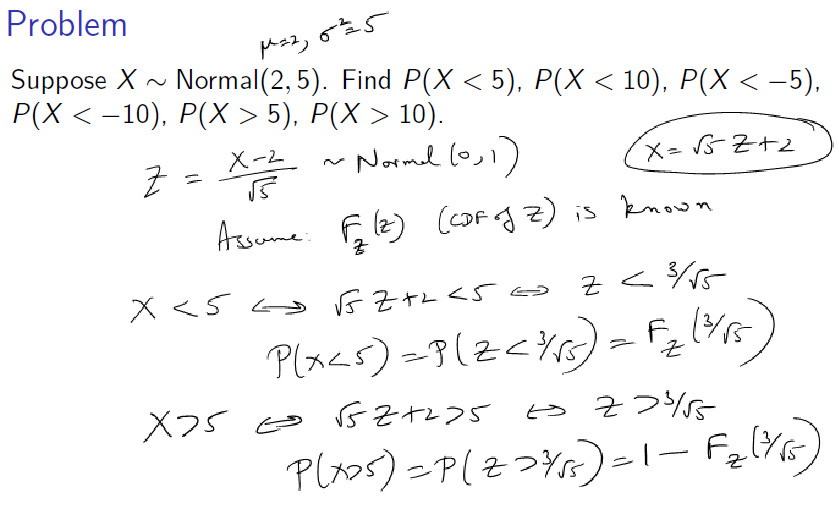 Problem
μ=2, σ²=5
Suppose X ∼ Normal(2, 5). Find P(X < 5), P(X < 10), P(X < −5),
P(X < −10), P(X > 5), P(X > 10).
Z = (X-2)/√5 ~ Normal(0,1)
X = √5 Z+2
Assume: F_Z(z) (CDF of Z) is known
X < 5 ⟺ √5 Z+2 < 5 ⟺ Z < 3/√5
P(X<5) = P(Z < 3/√5) = F_Z(3/√5)
X>5 ⟺ √5 Z+2>5 ⟺ Z > 3/√5
P(X>5) = P(Z > 3/√5) = 1 - F_Z(3/√5)